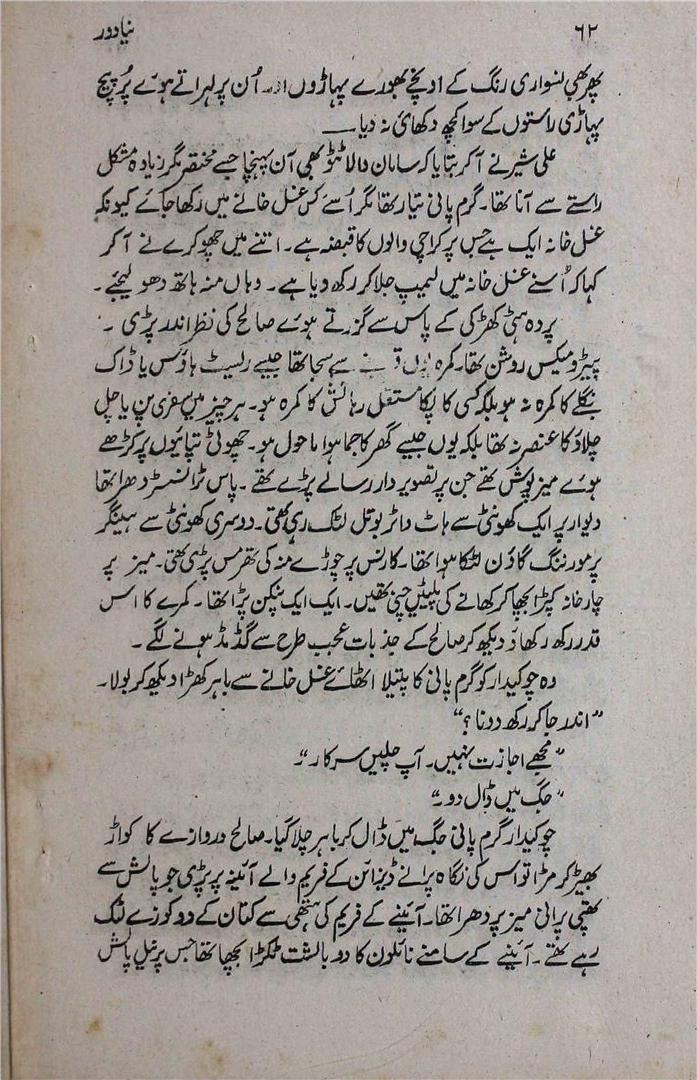 ۶۲
نیا دور
پھر بھی نسواری رنگ کے اونچے بھورے پہاڑوں اور اُن پر لہراتے ہوئے پُر پیچ
پہاڑی راستوں کے سوا کچھ دکھائی نہ دیا۔
علی شیر نے آ کر بتایا کہ سامان والا ٹٹو بھی آن پہنچا جسے مختصر مگر زیادہ مشکل
راستے سے آنا تھا۔ گرم پانی تیار تھا مگر اُسے کس غسل خانے میں رکھا جائے کیونکہ
غسل خانہ ایک ہے جس پر کراچی والوں کا قبضہ ہے۔ اتنے میں چھوکرے نے آ کر
کہا کہ اُسنے غسل خانہ میں لیمپ جلا کر رکھ دیا ہے۔ وہاں منہ ہاتھ دھو لیجئے۔
پردہ ہٹی کھڑکی کے پاس سے گزرتے ہوئے صالح کی نظر اندر پڑی۔
پیٹرو میکس روشن تھا۔ کمرہ یوں سے سجا تھا جیسے ریسٹ ہاؤس یا ڈاک
بنگلے کا کمرہ نہ ہو بلکہ کسی کا پکا مستقل رہائش کا کمرہ ہو۔ ہر چیز میں سفری پن یا چل
چلاؤ کا عنصر نہ تھا بلکہ یوں جیسے گھر کا جما ہوا ماحول ہو۔ چھوٹی تپائیوں پر کڑھے
ہوئے میز پوش تھے جن پر تصویر دار رسالے پڑے تھے۔ پاس ٹرانسسٹر دھرا تھا
دیوار پر ایک کھونٹی سے ہاٹ واٹر بوتل لٹک رہی تھی۔ دوسری کھونٹی سے ہینگر
پر مورننگ گاؤن لٹکا ہوا تھا۔ کارنس پر چوڑے منہ کی تھرمس پڑی تھی۔ میز پر
چار خانہ کپڑا بچھا کر کھانے کی پلیٹیں چنی تھیں۔ ایک ایک نپکن پڑا تھا۔ کمرے کا اس
قدر رکھ رکھاؤ دیکھ کر صالح کے جذبات عجب طرح سے گڈ مڈ ہونے لگے۔
وہ چوکیدار کو گرم پانی کا پتیلا اٹھائے غسل خانے سے باہر کھڑا دیکھ کر بولا۔
”اندر جا کر رکھ دو نا؟“
”مجھے اجازت نہیں۔ آپ چلیں سرکار“۔
”جگ میں ڈال دو۔“
چوکیدار گرم پانی جگ میں ڈال کر باہر چلا گیا۔ صالح دروازے کا کواڑ
بھیڑ کر مڑا تو اس کی نگاہ پرانے ڈیزائن کے فریم والے آئینہ پر پڑی جو پالش سے
تھپی پرانی میز پر دھرا تھا۔ آئینے کے فریم کی ہتھی سے کتان کے دو کوزے لٹک
رہے تھے۔ آئینے کے سامنے نائلون کا دو بالشت ٹکڑا بچھا تھا جس پر نیل پالش